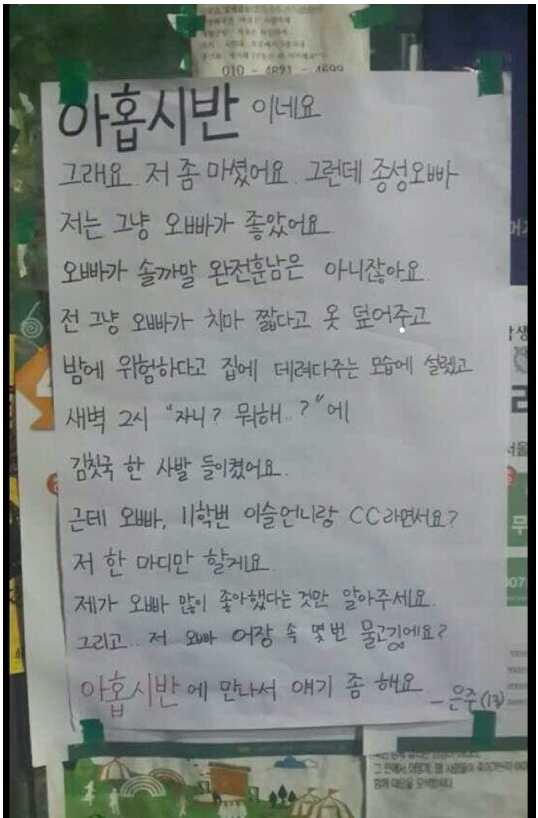 010 - 4891 - 4699
아홉시반 이네요
그래요. 저 좀 마셨어요. 그런데 종성오빠
저는 그냥 오빠가 좋았어요
오빠가 솔까말 완전훈남은 아니잖아요.
전 그냥 오빠가 치마 짧다고 옷 덮어주고
밤에 위험하다고 집에 데려다주는 모습에 설렜고
새벽 2시 "자니? 뭐해..?"에
김칫국 한 사발 들이켰어요.
근데 오빠, 11학번 이슬언니랑 CC라면서요?
저 한 마디만 할게요.
제가 오빠 많이 좋아했다는 것만 알아주세요.
그리고.. 저 오빠 어장 속 몇번 물고기에요?
아홉시반에 만나서 얘기 좀 해요
- 은주(13)